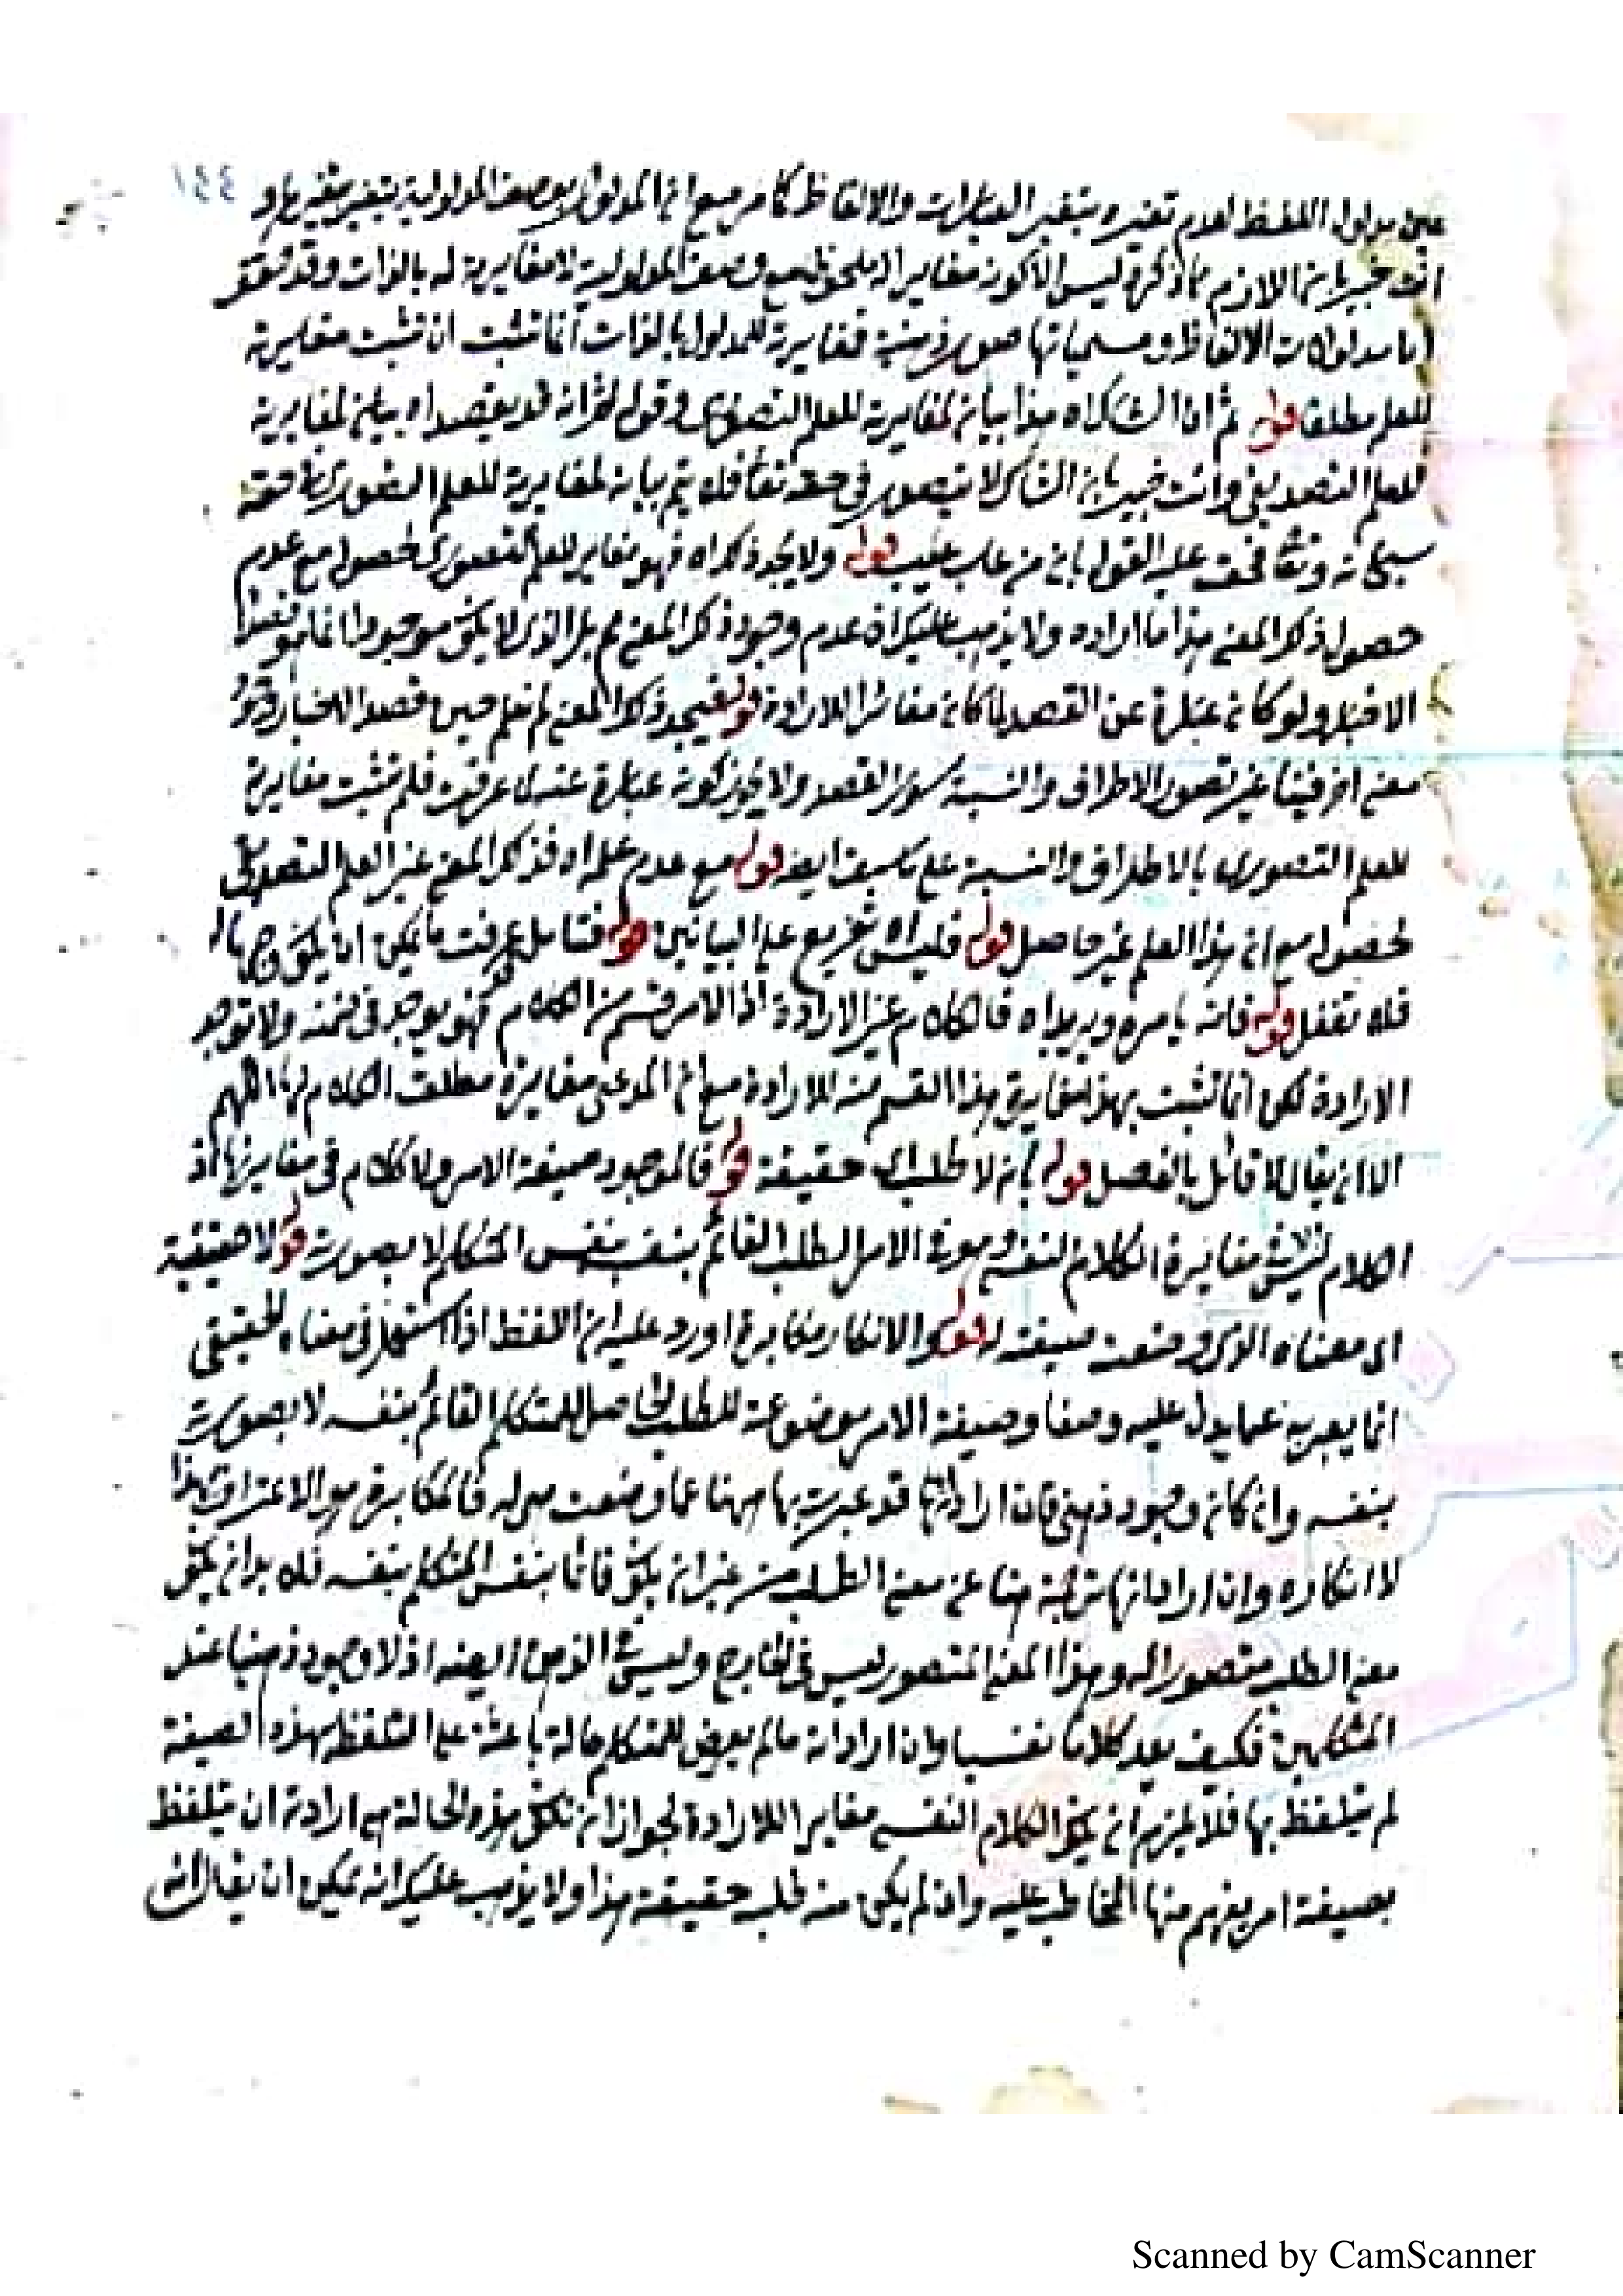 ١٤٤
عين مدلول اللفظ لعدم تغيره بتغير العبارات والالفاظ كما مر مع ان المدلول بوصف المدلولية يتغير بتغيرها و
انت خبير بان اللازم مما ذكره ليس الا كونه مغايرا له ملحوظا مع وصف المدلولية لا مغايرته له بالذات وقد تحقق
ان مدلولات الالفاظ ومسمياتها صور ذهنية فمغايرته للمدلول بالذات انما تثبت ان تثبت مغايرته
للعلم مطلقا قوله ثم ان الشاك اه هذا بيان لمغايرته للعلم التصوري وقوله ثم انه قد يقصد اه بيان لمغايرته
للعلم التصديقي وانت خبير بان الشاك لا يتصور في حقه تعالى فلا يتم بيانه لمغايرته للعلم التصوري في حقه
سبحانه وتعالى عليه القول بان من عاب عيب قوله ولا يجد ذكر اه فهو مغاير للعلم التصوري لحصوله مع عدم
حصول ذكر المعنى هذا ما اراده ولا يذهب عليك ان عدم وجود ذكر المعنى مم بل الذي لا يكون موجودا انما هو قصد
الاخبار ولو كان عبارة عن القصد لما كان مغايرا للارادة قوله فيجد ذكر المعنى لم نعلم حين قصد الاخبار وجود
معنى اخر فينا غير تصور الاطراف والنسبة سوى القصد ولا يجوز كونه عبارة عنه لما عرفت فلم تثبت مغايرته
للعلم التصوري بالاطراف والنسبة على ما سبق ايضا قوله مع عدم علمه اه فذكر المعنى غير العلم التصديقي
لحصوله مع ان هذا العلم غير حاصل قوله فليس اه تفريع على البيانين قوله فتامل عرفت ما يمكن ان يكون وجها له
فلا تغفل قوله فانه يامره ويريد اه فالكلام غير الارادة اذ الامر قسم من الكلام فهو يوجد في ضمنه ولا توجد
الارادة لكن انما تثبت بهذا مغايرة هذا القسم منه للارادة مع ان المدعى مغايرة مطلق الكلام لها اللهم
الا ان يقال لا قائل بالفصل قوله بانه لا طلب اي حقيقة قوله فالموجود صيغة الامر ولا كلام في مغايرتها اذ
الكلام في مغايرة الكلام النفسي وهو في الامر الطلب القائم بنفسه بنفس المتكلم لا بصورته قوله لا حقيقية
اي معناه الذي وضعت صيغته له قوله والانكار مكابرة اورد عليه ان اللفظ اذا استعمل في معناه الحقيقي
انما يعبر به عما يدل عليه وضعا وصيغة الامر موضوعة للطلب الحاصل للمتكلم القائم بنفسه لا بصورته
بنفسه وان كان وجود ذهني فان اراد انها قد عبرت بها ههنا عما وضعت هي له فالمكابرة هو الاعتراف بهذا
لا انكاره وان اراد انها ترجمة هنا عن معنى الطلب من غير ان يكون قائما بنفس المتكلم بنفسه فلا بد ان يكون
معنى الطلب متصورا له وهذا المعنى المتصور ليس في الخارج وليس في الذهن ايضا اذ لا وجود ذهنيا عند
المتكلمين فكيف يعد كلاما نفسيا وان اراد انه ما لم يعرض للمتكلم حالة باعثة على التلفظ بهذه الصيغة
لم يتلفظ بها فلا يلزم ان يكون الكلام النفسي مغايرا للارادة لجواز ان تكون هذه الحالة هي ارادة ان يتلفظ
بصيغة امر يفهم منها المخاطب عليه وان لم يكن منه طلب حقيقة هذا ولا يذهب عليك انه يمكن ان يقال انه
Scanned by CamScanner